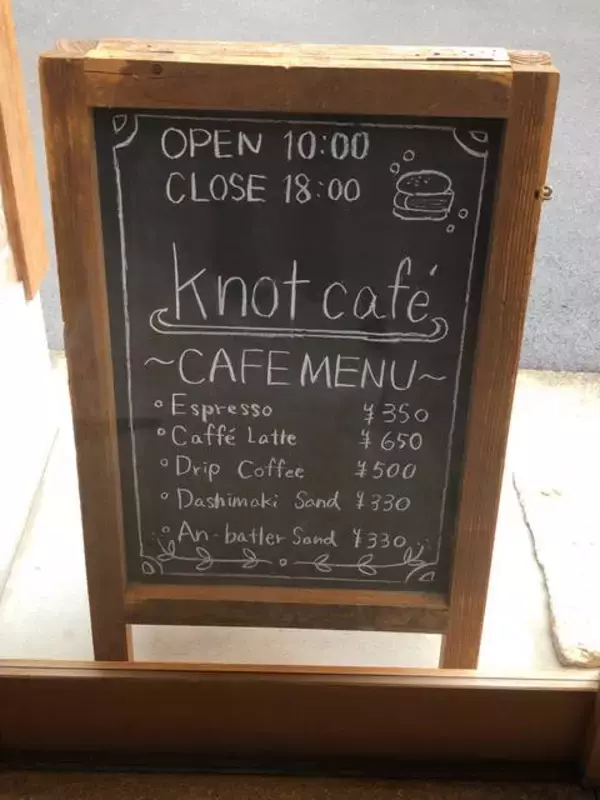 OPEN 10:00
CLOSE 18:00
knot café
~CAFE MENU~
Espresso ¥350
Caffé Latte ¥650
Drip Coffee ¥500
Dashimaki Sand ¥330
An-batler Sand ¥330